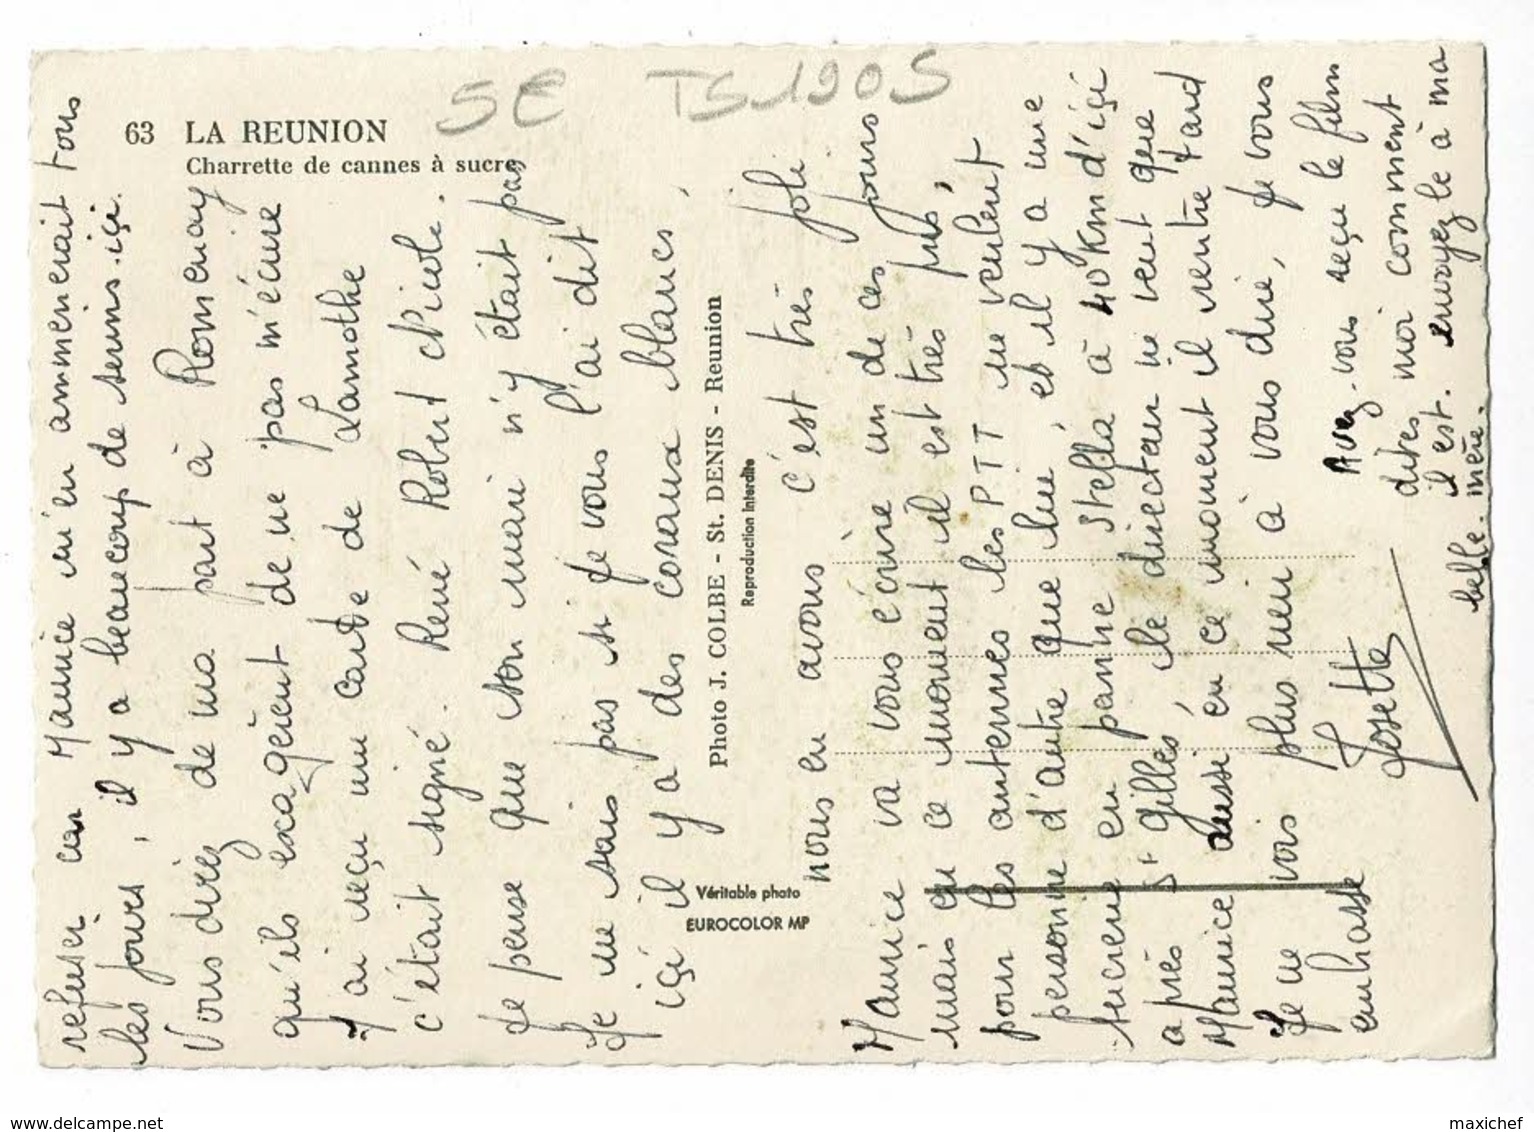 5€ TS1905
63 LA REUNION
Charrette de cannes à sucre
refuser car Maurice m'en ammenerait tous
les jours, il y a beaucoup de serins içi.
Vous direz de ma part à Romenay
qu'ils exagèrent de ne pas m'écrire
J'ai reçu une carte de Lamothe
c'était signé. René Robert Nicole.
je pense que son mari n'y était pas
Je ne sais pas si je vous l'ai dit
içi il y a des coraux blancs,
nous en avons c'est très joli
Véritable photo
EUROCOLOR MP
Photo J. COLBE - St. DENIS - Reunion
Reproduction Interdite
Maurice va vous écrire un de ces jours
mais en ce moment il est très pris,
pour les antennes les PTT ne veulent
personne d'autre que lui, et il y a une
sucrerie en panne Stella à 40 Km d'içi
après St Gilles, le directeur ne veut que
Maurice aussi en ce moment il rentre tard
Je ne vois plus rien à vous dire, je vous
embrasse
Josette
Avez-vous reçu le film
dites moi comment
il est. envoyez le à ma
belle-mère.
www.delcampe.net
maxichef